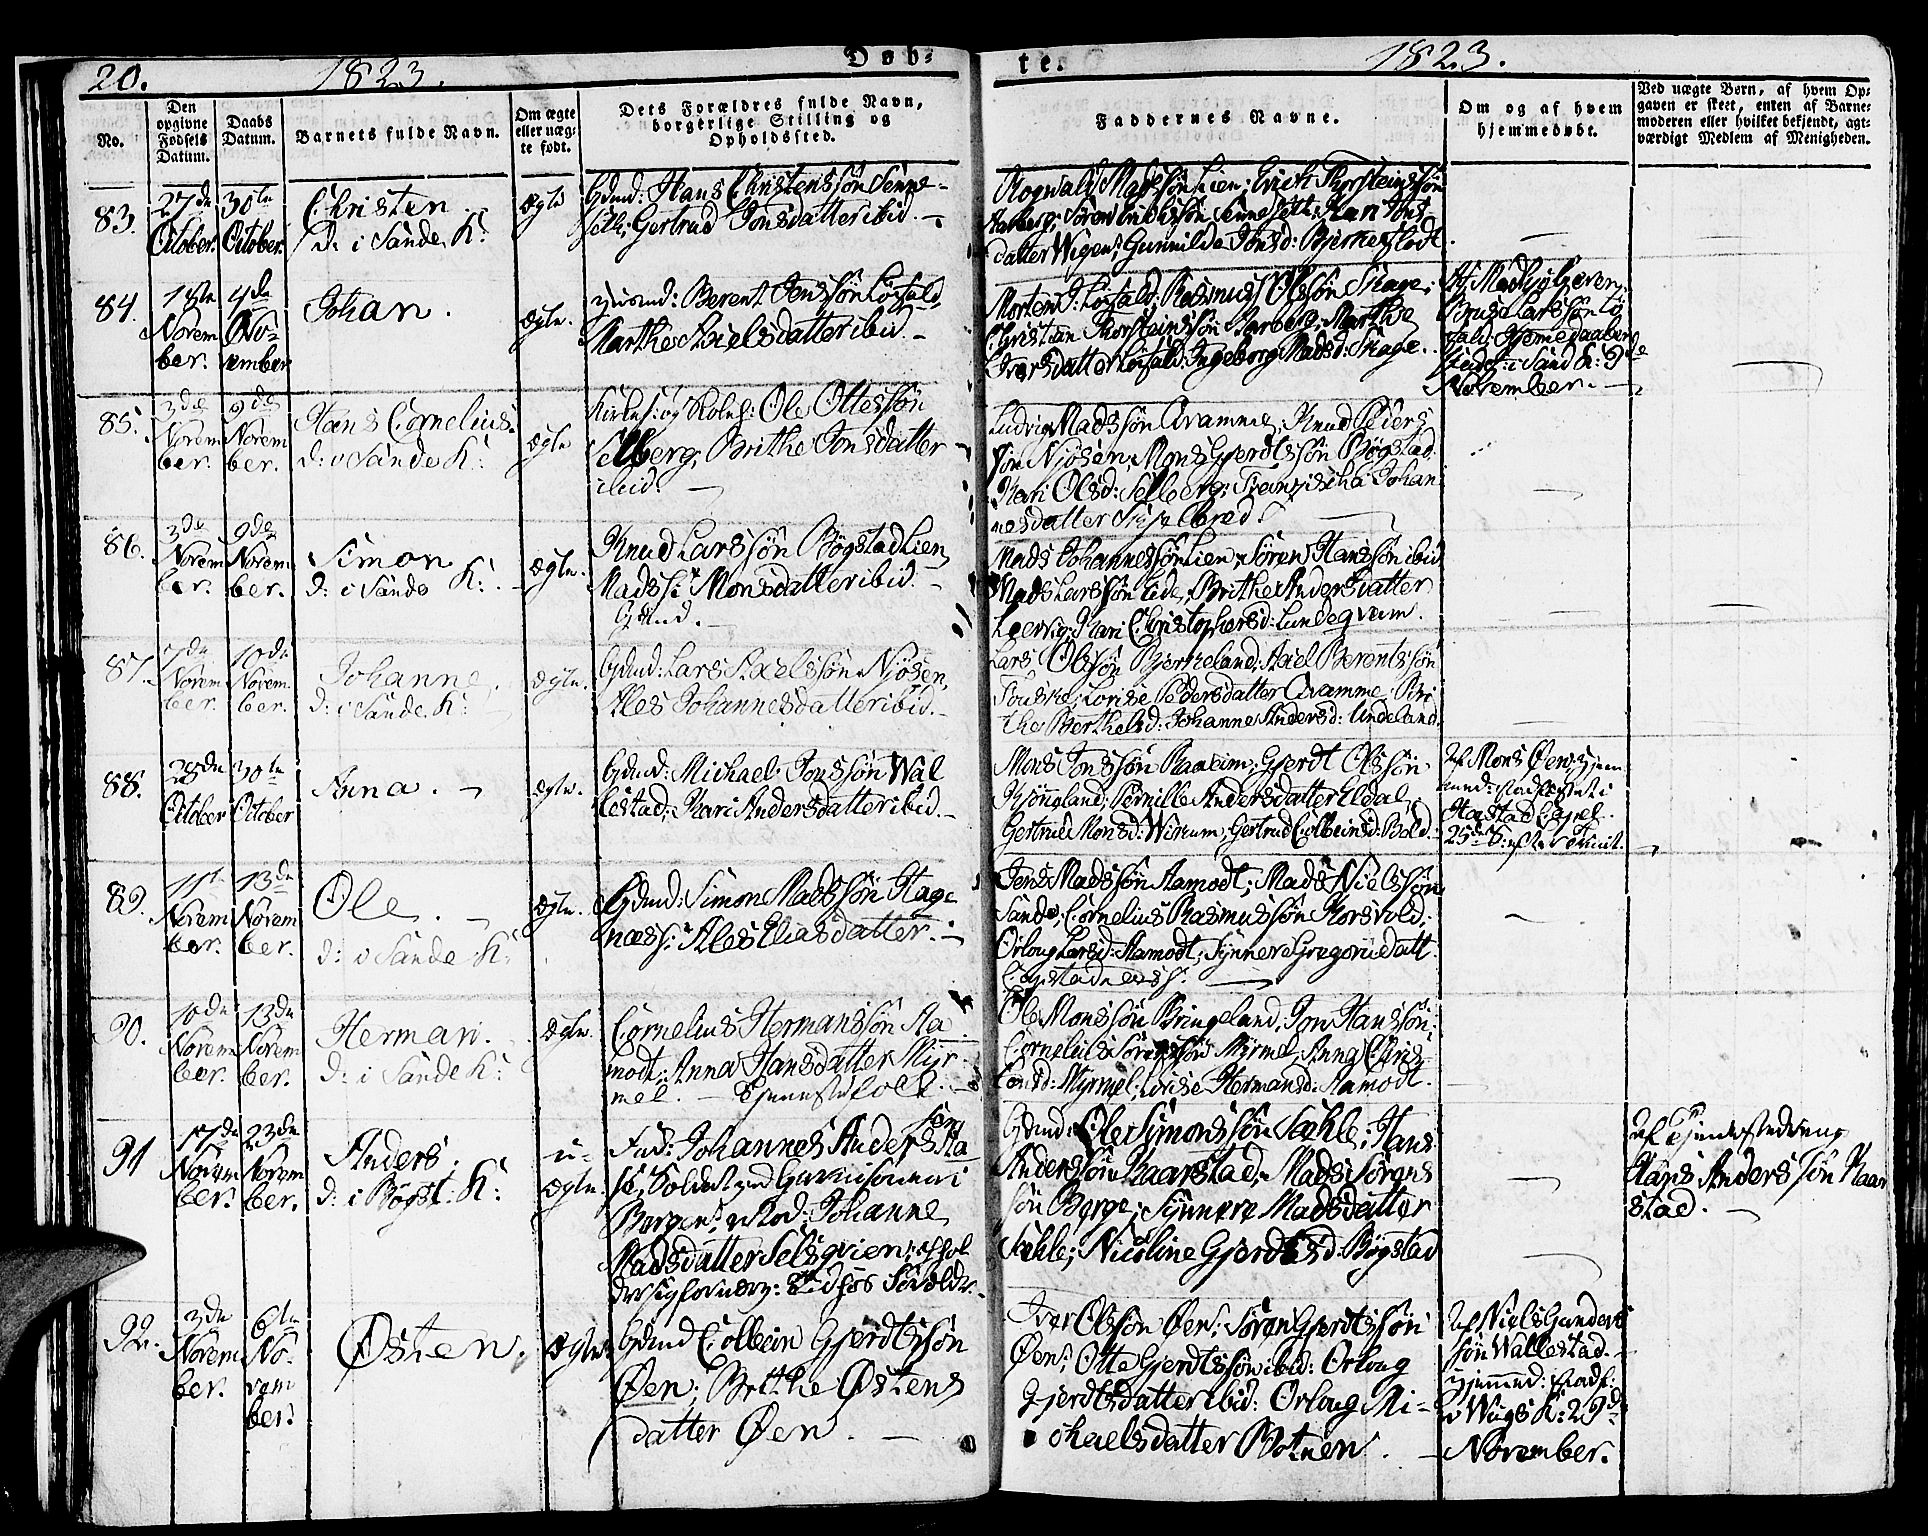 20. 1823. Døb-
te. 1823.
No.
Den opgivne Fødsels Datum.
Daabs Datum.
Barnets fulde Navn.
Om ægte eller uæg-
te født.
Dets Forældres fulde Navn,
borgerlige Stilling og
Opholdssted.
Faddernes Navne.
Om og af hvem
hjemmedøbt.
Ved uægte Børn, af hvem Op-
gaven er skeet, enten af Barne-
moderen eller hvilket bekjendt, agt-
værdigt Medlem af Menigheden.
83.
27de
October.
30te
October.
Christen
D: i Sande K:
Ægte
Gdmd: Hans Christenssøn Senne-
seth; Gertrud Jonsdatter ibid. -
Rognald Madssøn Lien; Erich Thorsteinssøn
Aarberg; Søren Erichssøn Senneseth; Kari Jons
datter Wigen; Gunnilde Jonsd: Bjerkeflodt
84.
Novem
ber.
4de
No-
vember
Johan.
Ægte.
Berent Jenssøn Løsfald
Marthe Axelsdatter ibid. -
Morten J. Løsfald; Rasmus Olssøn Skage;
Christian Thorsteinssøn Aarberg; Marthe
Iversdatter Løsfald; Ingeborg Madsd: Skage.
Af Medhjelperen
Larssøn Lø
fald; Hjemedaaben
i Sand K: 9de
November. -
85.
3die
Novem
ber.
9de
Novem
ber.
Hans Cornelius.
D: i Sande K:
Ægte
Ole Ottessøn
Selberg; Brithe Jonsdatter
ibid. -
Ludvig Madssøn Qvamme; Knud Peders
søn Njøsen; Mons Gjerdtssøn Bøgstad.
Kari Olsd: Selberg; Franzischa Johan
nesdatter
86.
3de
Novem
ber.
9de
Novem
ber.
Simon
D: i Sande K: -
Ægte.
Knud Larssøn Bøgstadlien
Monsdatter ibid. -
Gdmd. -
Mads Johannessøn Lien; Søren Hanssøn ibid
Mads Larssøn Eide; Brithe Andersdatter
Kari Christophersd: Lundeqvam.
87.
7de
Novem
ber.
10de
Novem
ber.
Johanne.
D: i Sande K:
Ægte.
Gdmd: Lars Axelssøn Njøsen,
Ales Johannesdatter ibid. -
Lars Olssøn Bjerkeland; Axel Berentssøn
Lovise Pedersdatter Qvamme; Bri
the Berthelsd: Johanne Andersd: Undeland.
88.
28de
October
30te
October
Anna. -
Ægte.
Gdmd: Michael Jonssøn Wal
lestad; Kari Andersdatter ibid. -
Mons Jonssøn Raaeim; Gjerdt Olssøn
Pernille Andersdatter Eldal;
Gertrud Monsd: Gertrud Colbeinsd: Bold.
Af Mons Øen; Hjem
i
89.
11te
Novem
ber.
13de
Novem
ber.
Ole. -
D: i Sande K:
Ægte.
Gdmd: Simon Madssøn Hage
næss: Ales Eliasdatter. -
Jens Madssøn Aamodt; Mads Nielssøn
Sande; Cornelius Rasmussøn Korsvold;
Orloug Larsd: Aamodt; Synnere Gregoriidatt.
90.
10de
Novem
ber.
13de
Novem
ber.
Herman.
D: i Sande K:
Ægte.
Cornelius Hermanssøn Aa
modt: Anna Hansdatter Myr-
mel. - Tjenestefolk. -
Ole Monssøn Bringeland; Jon Hanssøn;
Cornelius Sørenssøn Myrmel; Anna Chris
tensd: Myrmel; Lovise Hermansd: Aamodt.
91
17de
Novem
ber.
23de
Novem
ber.
Anders.
D: i Bøgst: K:
u-
Ægte.
Johannes Anders
søn
Soldat ved Garnisonen i
Bergen: Johanne
Madsdatter
Gdmd: Ole Simonssøn Sæhle; Hans
Anderssøn Kaarstad; Mads Sørens
søn Berge; Synnere Madsdatter
Sæhle; Nicoline Gjerdtsd: Bøgstad
af
Hans Anderssøn Kaar
stad. -
92.
3de
Novem
ber.
6te
No-
vem
ber.
Østen.
Ægte.
Gdmd Colbein Gjerdtssøn
Øen; Brithe Østens
datter Øen. -
Iver Olssøn Øen; Søren Gjerdtssøn
Øen; Otte Gjerdtssøn ibid: Orloug
Gjerdtsdatter ibid: Orloug Mi-
chaelsdatter Botnen.
Af Niels Gunders
søn Wallestad. -
K: 29de
November.